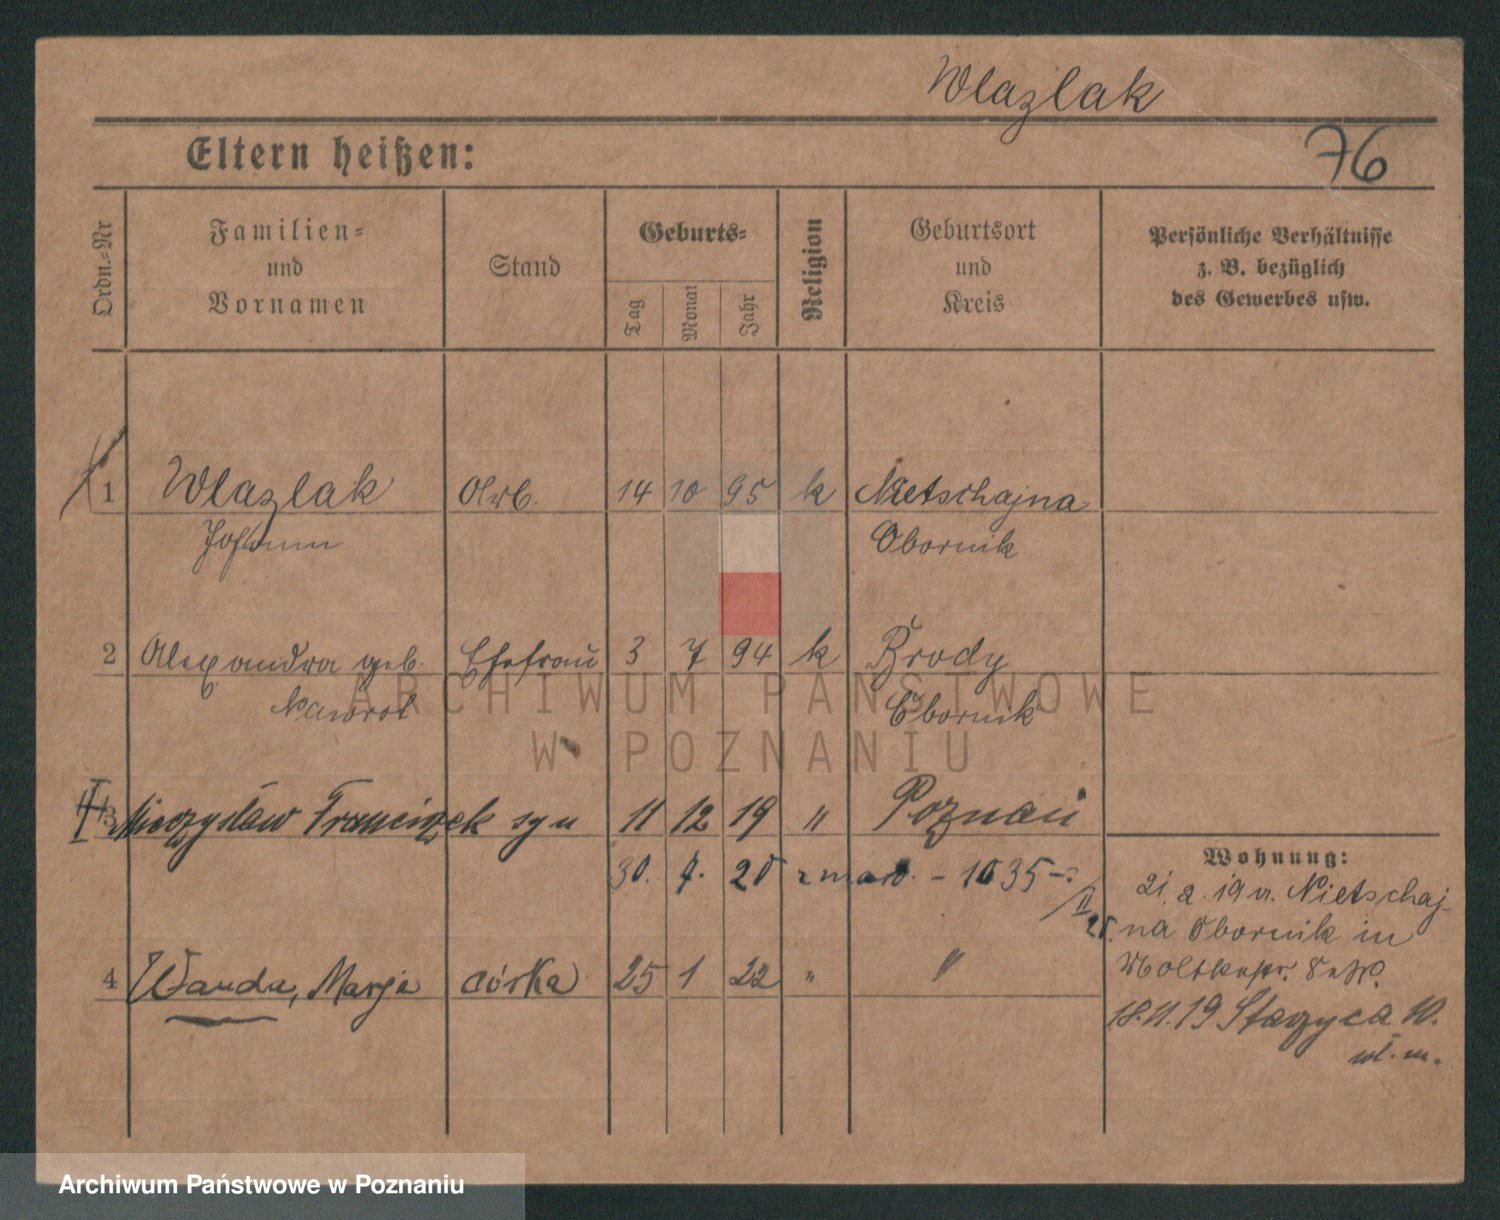 Wlazlak
Eltern heißen:
76
Ordn.=Nr
Familien=
und
Vornamen
Stand
Geburts=
Tag
Monat
Jahr
Religion
Geburtsort
und
Kreis
Persönliche Verhältnisse
z. B. bezüglich
des Gewerbes usw.
1 Wlazlak Arb. 14 10 95 k Nietschajna
Johann Obornik
2 Alexandra geb. Ehefrau 3 7 94 k Brody
Nawrot Obornik
3 Mieczysław Franciszek syn 11 12 19 " Poznań
30. 20 zmarł. - 1035 -
4 Wanda, Marja córka 25 1 22 " "
Wohnung:
21. 2. 19 v. Nietschaj-
na Obornik in
18.11.19 10.
wł. m.
ARCHIWUM PAŃSTWOWE
W POZNANIU
Archiwum Państwowe w Poznaniu